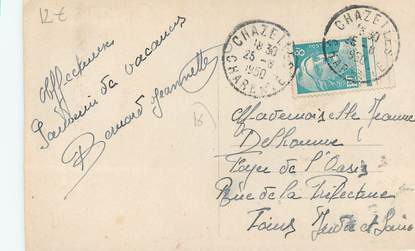 12 €
Affectueux
Souvenir de vacances
Bernard Jeannette
CHAZELLES
18 30
25 - 8
1950
CHARENTE
CHAZELLES
18 30
1950
8F
Mademoiselle Jeanne
Delhomme
Foyer de l'Oasis
Rue de la Préfecture
Tours Indre et Loire